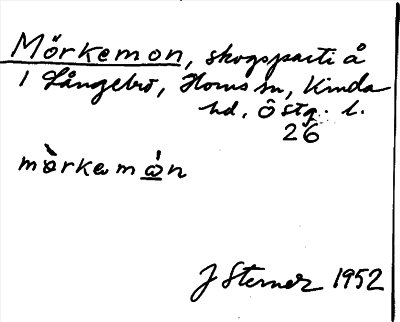 Mörkemon, skogsparti å
1 Långebro, Horns sn, Kinda
hd, Östg. l.
26
mòrkemón
J Sterner 1952